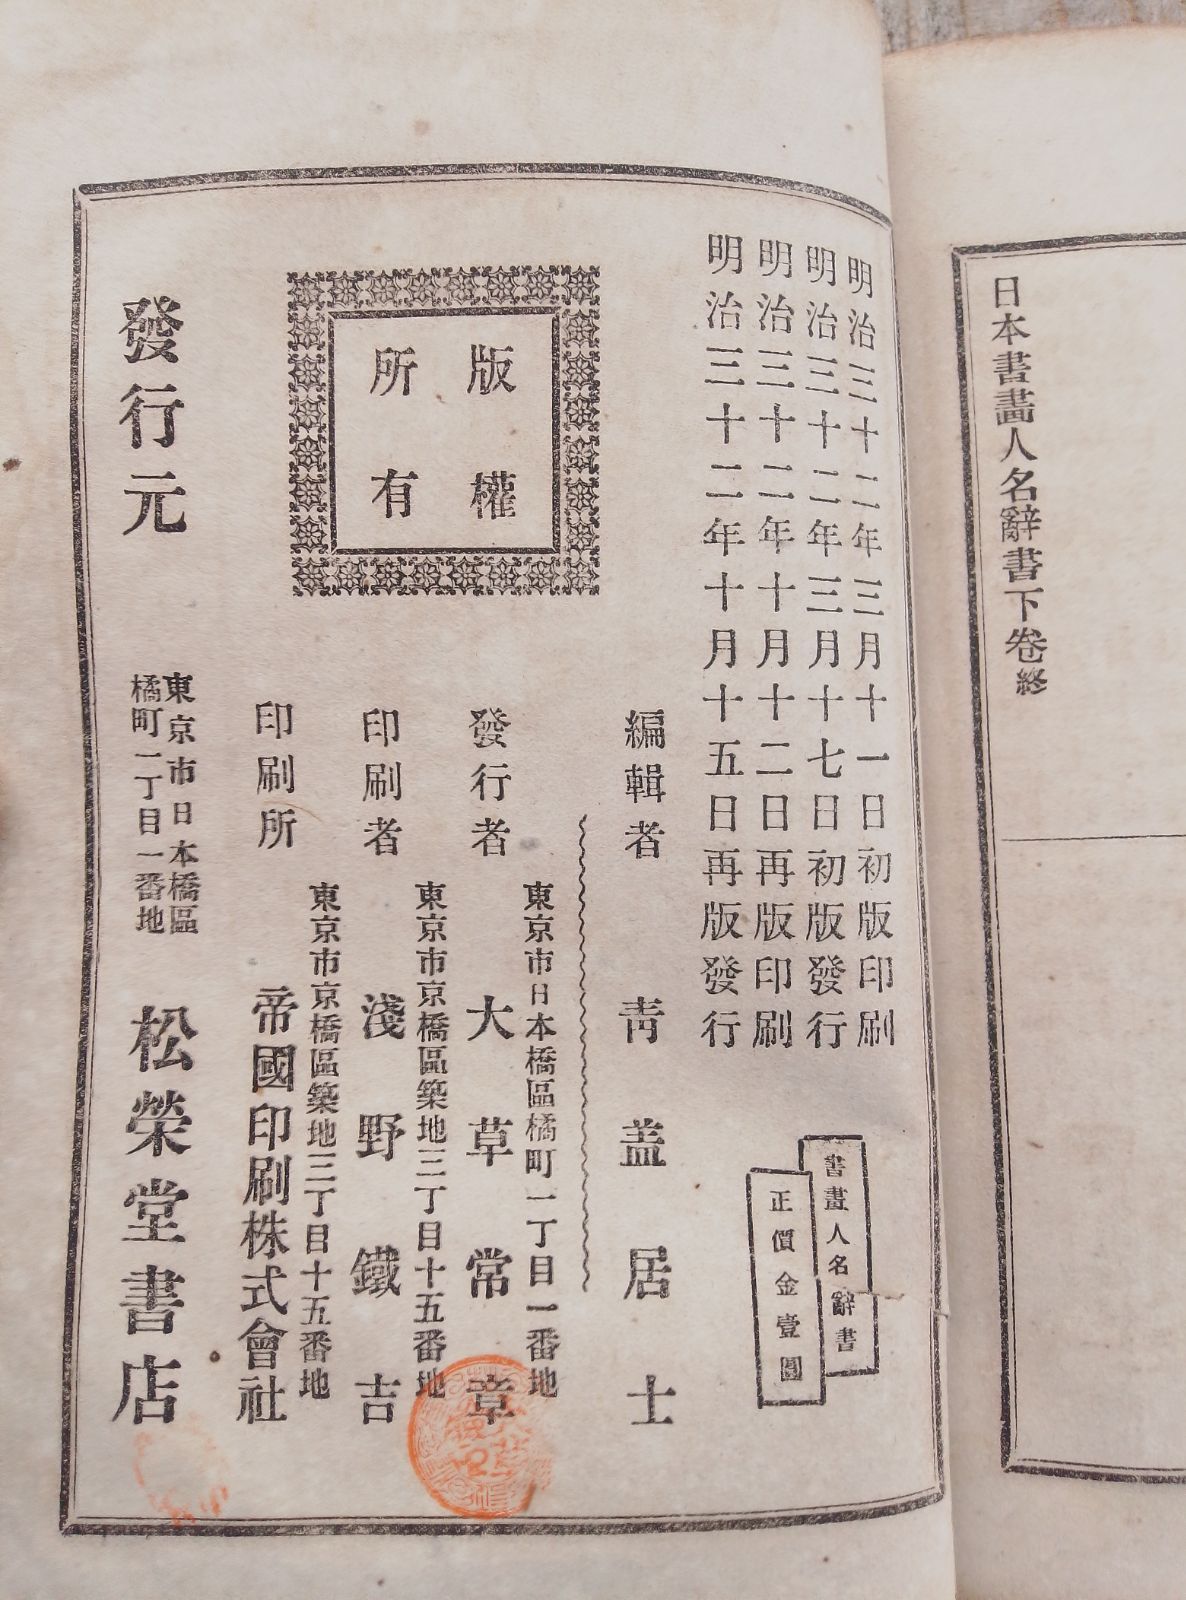 日本書畫人名辭書下卷終
明治三十二年三月十一日初版印刷
明治三十二年三月十七日初版發行
明治三十二年十月十二日再版印刷
明治三十二年十月十五日再版發行
書畫人名辭書
正價金壹圓
編輯者 靑盖居士
東京市日本橋區橘町一丁目一番地
發行者 大草常章
東京市京橋區築地三丁目十五番地
印刷者 淺野鐵吉
東京市京橋區築地三丁目十五番地
印刷所 帝國印刷株式會社
版權
所有
發行元
東京市日本橋區
橘町一丁目一番地
松榮堂書店